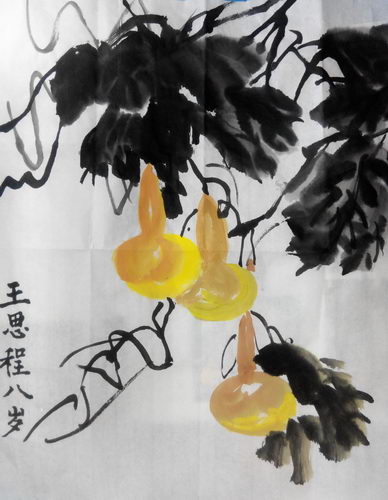 王思程八岁